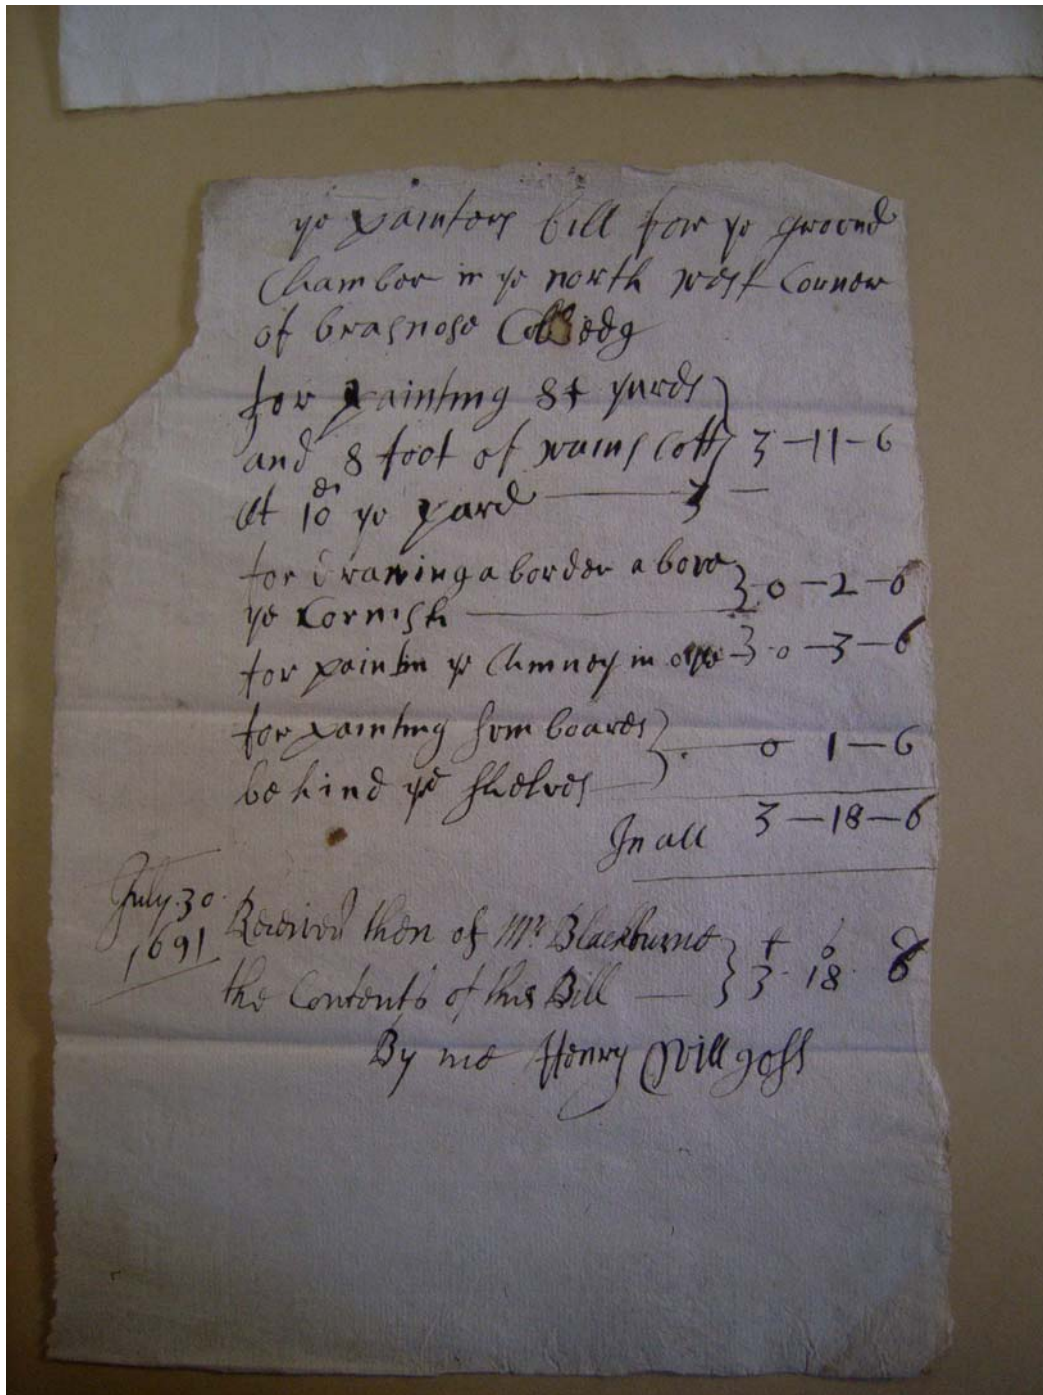 ye painters bill for ye ground
Chamber in ye north west Corner
of brasnose Colledg
for painting 84 yards
and 8 foot of wainscott 3-11-6
At 10d ye yard
for drawing a border above 0-2-0
ye Cornish
for paintin ye Chimney in 0-3-6
for painting som boards
behind ye shelves 0 1-6
In all 3-18-6
July. 30
1691
Received then of Mr Blackburne
the Contents of this Bill 3. 18. 6
By me Henry Willgoss